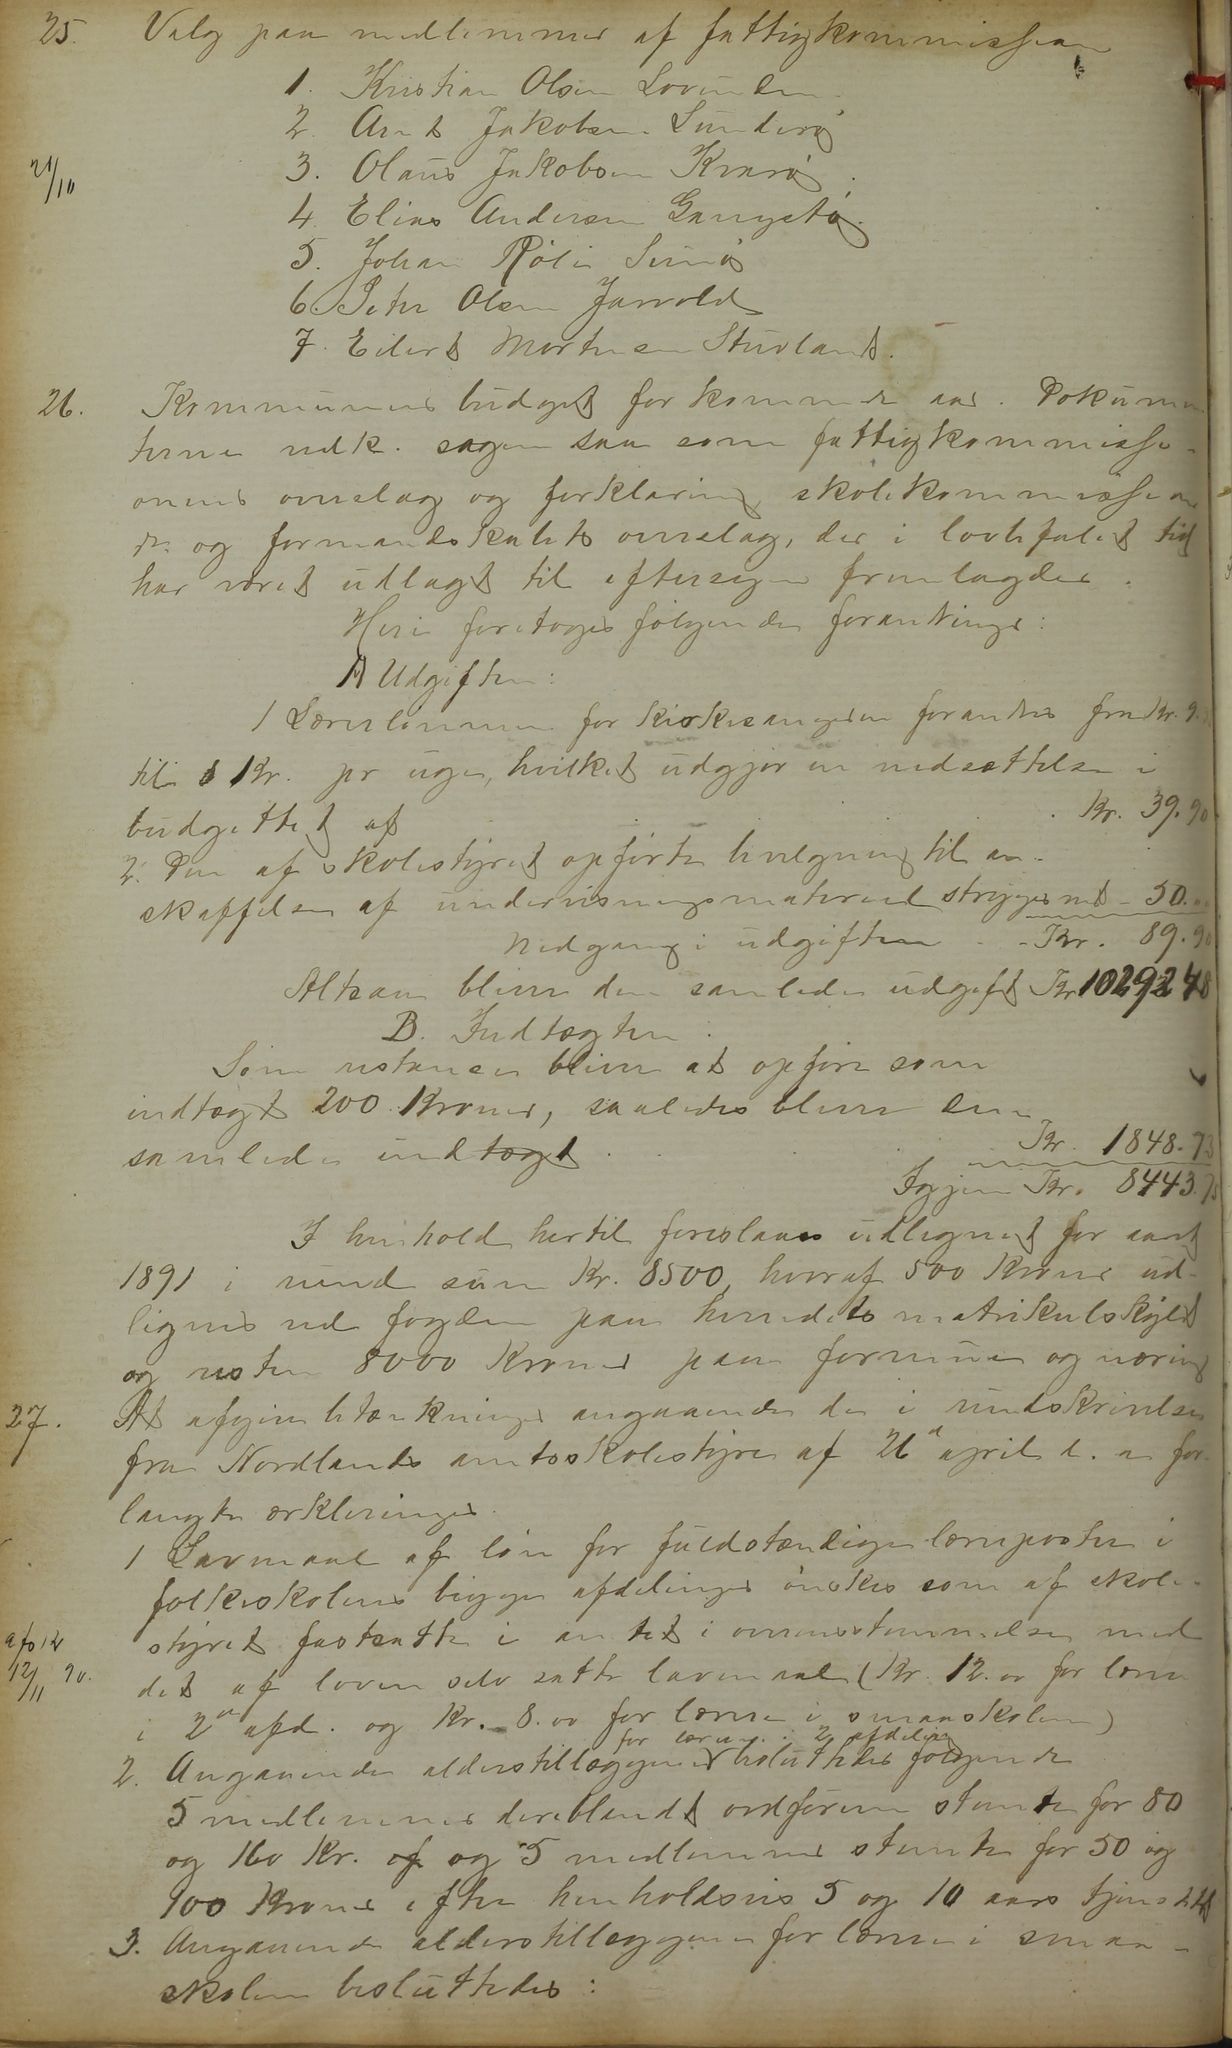 25. Valg paa medlemmer af fattigkommissionen
1. Kristian Olsen Lovunden
2. Arnt Jakobsen Sunderø
21/10
3. Olaus Jakobsen Kvarø
4. Elias Andersen Gangstø
5. Johan Rølie Sunø
6. Peter Olsen Jarvold
7. Eilert Mortensen Stuvland.
26. Kommunens budget for kommende aar. Dokumen
terne vedk. sagen saa som fattigkommissi-
onens overslag og forklaring, skolekommissionen
og formandskabets overslag, der i lovbefalet tid
har været udlagt til eftersyn fremlagdes.
Heri foretoges følgende forandringer:
A Udgiften:
1 Lærerlønnen for kirkesangeren forandres fra Kr. 9.
til Kr. pr uge, hvilket udgjør en nedsættelse i
budgettet af Kr. 39.90
2. Den af skolestyret opførte bevilgning til an-
skaffelse af undervisningsmateriel stryges med - 50.00
Nedgang i udgiften - Kr. 89.90
Altsaa bliver den samlede udgift Kr 10292 48
B. Indtægten:
Som restancer bliver at opføre som
indtægt 200 Kroner, saaledes bliver den
samlede indtægt Kr. 1848.73
Igjen Kr. 8443.75
I henhold hertil foreslaaes udlignet for aaret
1891 i rund sum Kr. 8500, hvoraf 500 Kroner ud-
lignes ved fogden paa herredets matrikulskyld
og resten 8000 Kroner paa formue og næring
27. At afgive betænkninger angaaende de i rundskrivelse
fra Nordlands amtsskolestyre af 26de april d. a for-
langte erklæringer.
1 Lavmaal af løn for fuldstændige læreposter i
folkeskolens begge afdelinger ønskes som af skole-
afs 12/11 90.
styret fastsatte i amtet i overensstemmelse med
det af loven selv satte lavmaal (Kr. 12.00 for lærere
i 2den afd. og Kr. 8.00 for lærere i smaaskolen)
for lærerne i 2 afdeling
2. Angaaende alderstillæggene besluttedes følgende
5 medlemmer deriblandt ordføreren stemte for 80
og 160 Kr. og 5 medlemmer stemte for 50 og
100 Kroner efter henholdsvis 5 og 10 aars tjenestetid
3. Angaaende alderstillæggene for lærere i smaa-
skolen besluttedes: